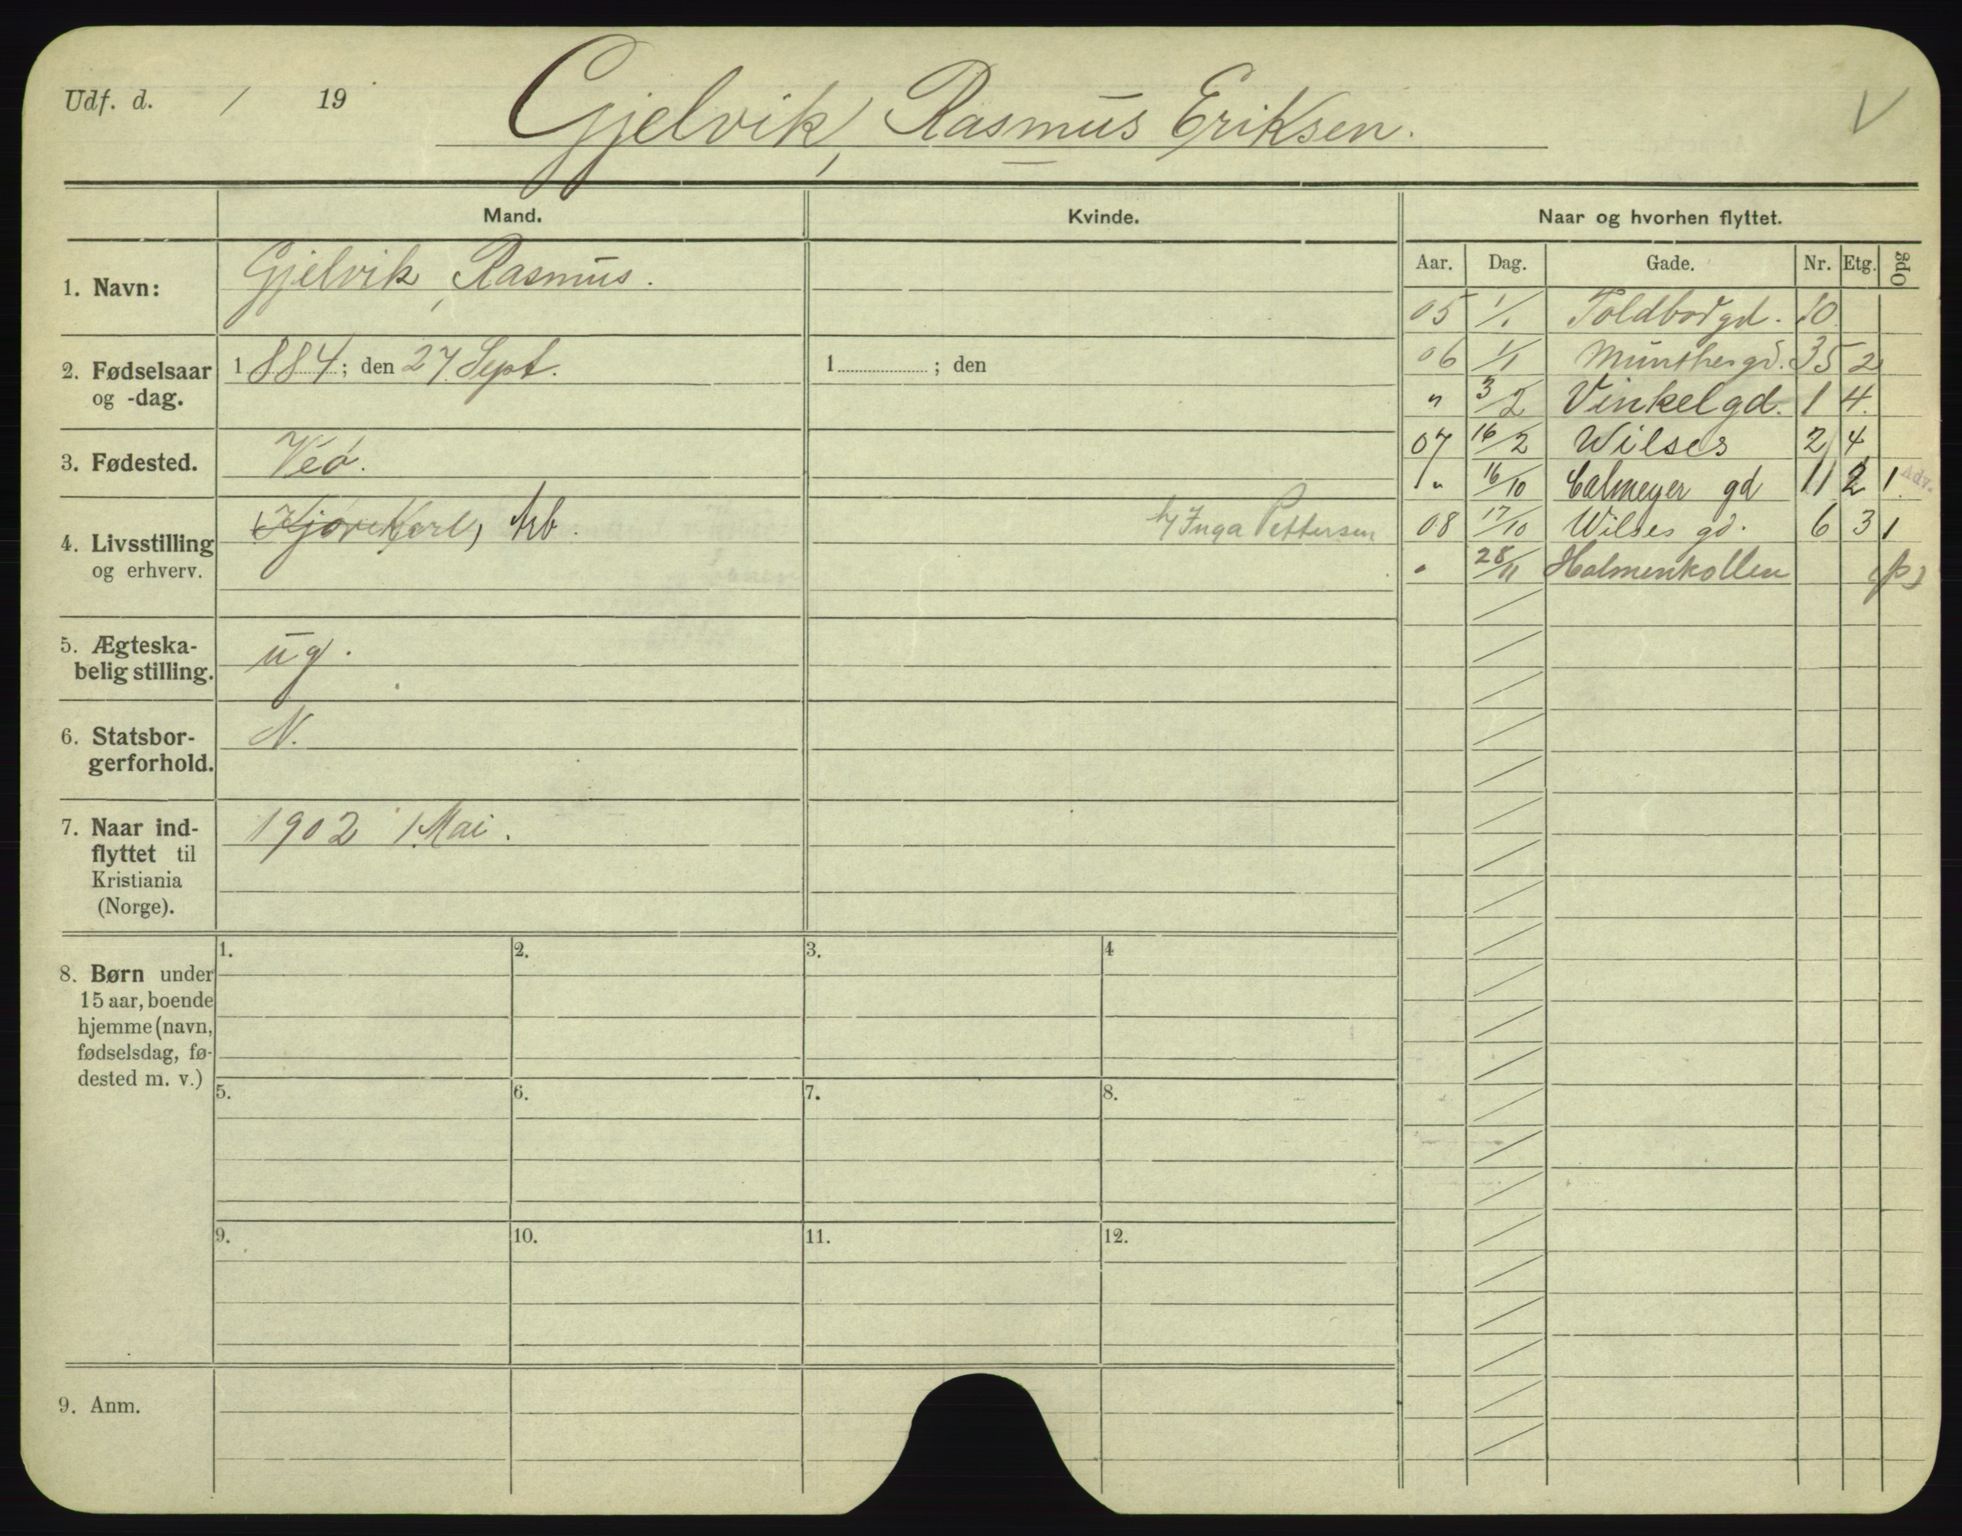 Udf. d. / 19
Gjelvik, Rasmus Eriksen.
V
Mand.
Kvinde.
Naar og hvorhen flyttet.
Aar. Dag. Gade. Nr. Etg. Opg
1. Navn:
Gjelvik, Rasmus.
2. Fødselsaar
og -dag.
1884; den 27 Sept.
1 ; den
3. Fødested.
Veø.
4. Livsstilling
og erhverv.
Kjørekarl, Arb.
h/ Inga Pettersen
5. Ægteska-
belig stilling.
ug.
6. Statsbor-
gerforhold.
N.
7. Naar ind-
flyttet til
Kristiania
(Norge).
1902 1 Mai.
8. Børn under
15 aar, boende
hjemme (navn,
fødselsdag, fø-
dested m. v.)
1. 2. 3. 4
5. 6. 7. 8.
9. 10. 11. 12.
9. Anm.
05 1/1 Toldbodgd. 10
06 1/1 Munthesgd. 35 2
" 3/2 Vinkelgd. 1 4.
07 16/2 Wilses 2 4
" 16/10 Calmeyer gd 11 2 1 Adv.
08 17/10 Wilses gd. 6 3 1
" 28/11 Holmenkollen (p)